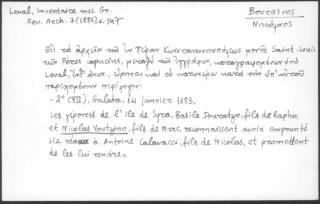 Leval, Inventaire mss. Gr.
Rev. Arch. 7 (1886) σ. 347
Βουτσῖνος
Νικόλαος
Εἰς τὸ ἀρχεῖον τῆς ἐν Πέραν Κωνσταντινουπόλεως μονῆς Saint-Louis
τῶν Pères capucins, μεταξὺ τῶν ἐγγράφων, καταγραφομένων ὑπὸ
Leval, ὑπ' ὄψιν, εὑρίσκεται καὶ τὸ κατωτέρω κατὰ τὴν ὑπ' αὐτοῦ
παρεχομένην περίληψιν:
- 2° (VII), Galata, 14 janvier 1683.
Les γέροντες de l'île de Syra, Basile Douratzo, fils de Rapho,
et Nicolas Voutzino, fils de Marc, reconnaissent avoir emprunté
six réaux à Antoine Calavacci, fils de Nicolas, et promettent
de les lui rendre»